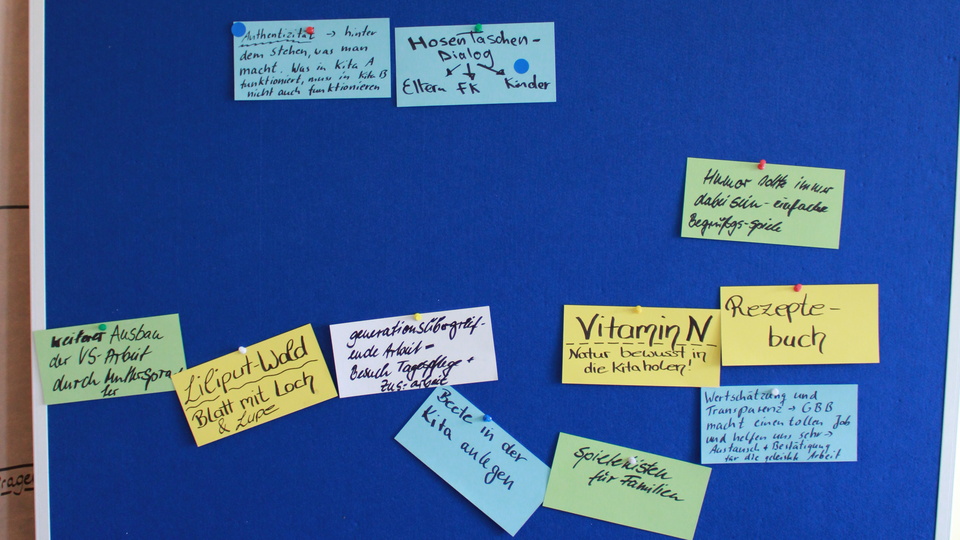 Authentizität → hinter
dem stehen, was man
macht. Was in Kita A
funktioniert, muss in Kita B
nicht auch funktionieren
HosenTaschen-
Dialog
Eltern FK Kinder
Humor sollte immer
dabei sein - einfache
Begrüßgs-spiele
weiterer Ausbau
der VS-Arbeit
durch Muttersprach
ler
Liliput-Wald
Blatt mit Loch
& Lupe
generationsübergreif-
ende Arbeit =
Besuch Tagespflege +
Zus-arbeit
Vitamin N
Natur bewusst in
die Kita holen!
Rezepte-
buch
Beete in der
Kita anlegen
Spielekisten
für Familien
Wertschätzung und
Transparenz → GBB
macht einen tollen Job
und helfen uns sehr →
Austausch + Bestätigung
für die geleistete Arbeit